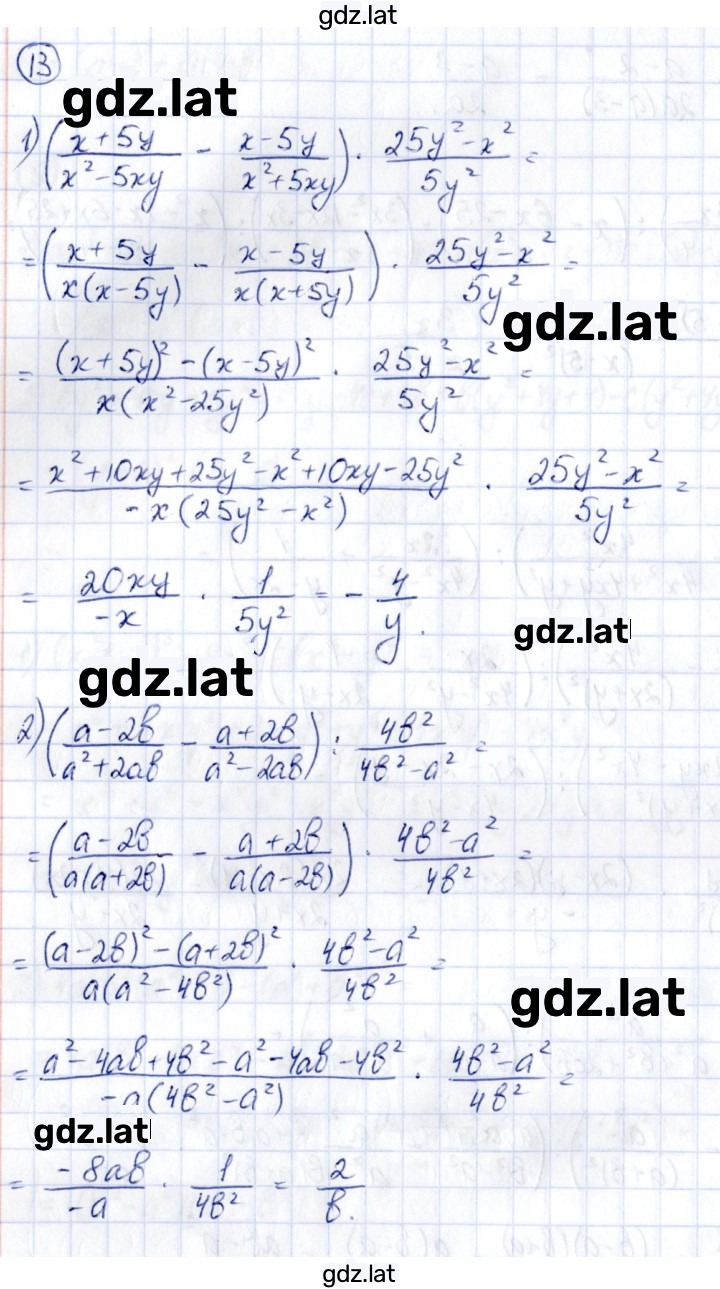 gdz.lat
13
gdz.lat
1) ((x+5y)/(x²-5xy) - (x-5y)/(x²+5xy)) · (25y²-x²)/(5y²) =
= ((x+5y)/(x(x-5y)) - (x-5y)/(x(x+5y))) · (25y²-x²)/(5y²) =
gdz.lat
= ((x+5y)²-(x-5y)²)/(x(x²-25y²)) · (25y²-x²)/(5y²) =
= (x²+10xy+25y²-x²+10xy-25y²)/(-x(25y²-x²)) · (25y²-x²)/(5y²) =
= (20xy)/(-x) · 1/(5y²) = - 4/y.
gdz.lat
gdz.lat
2) ((a-2b)/(a²+2ab) - (a+2b)/(a²-2ab)) : (4b²)/(4b²-a²) =
= ((a-2b)/(a(a+2b)) - (a+2b)/(a(a-2b))) · (4b²-a²)/(4b²) =
= ((a-2b)²-(a+2b)²)/(a(a²-4b²)) · (4b²-a²)/(4b²) =
gdz.lat
= (a²-4ab+4b²-a²-4ab-4b²)/(-a(4b²-a²)) · (4b²-a²)/(4b²) =
gdz.lat
= (-8ab)/(-a) · 1/(4b²) = 2/b.
gdz.lat